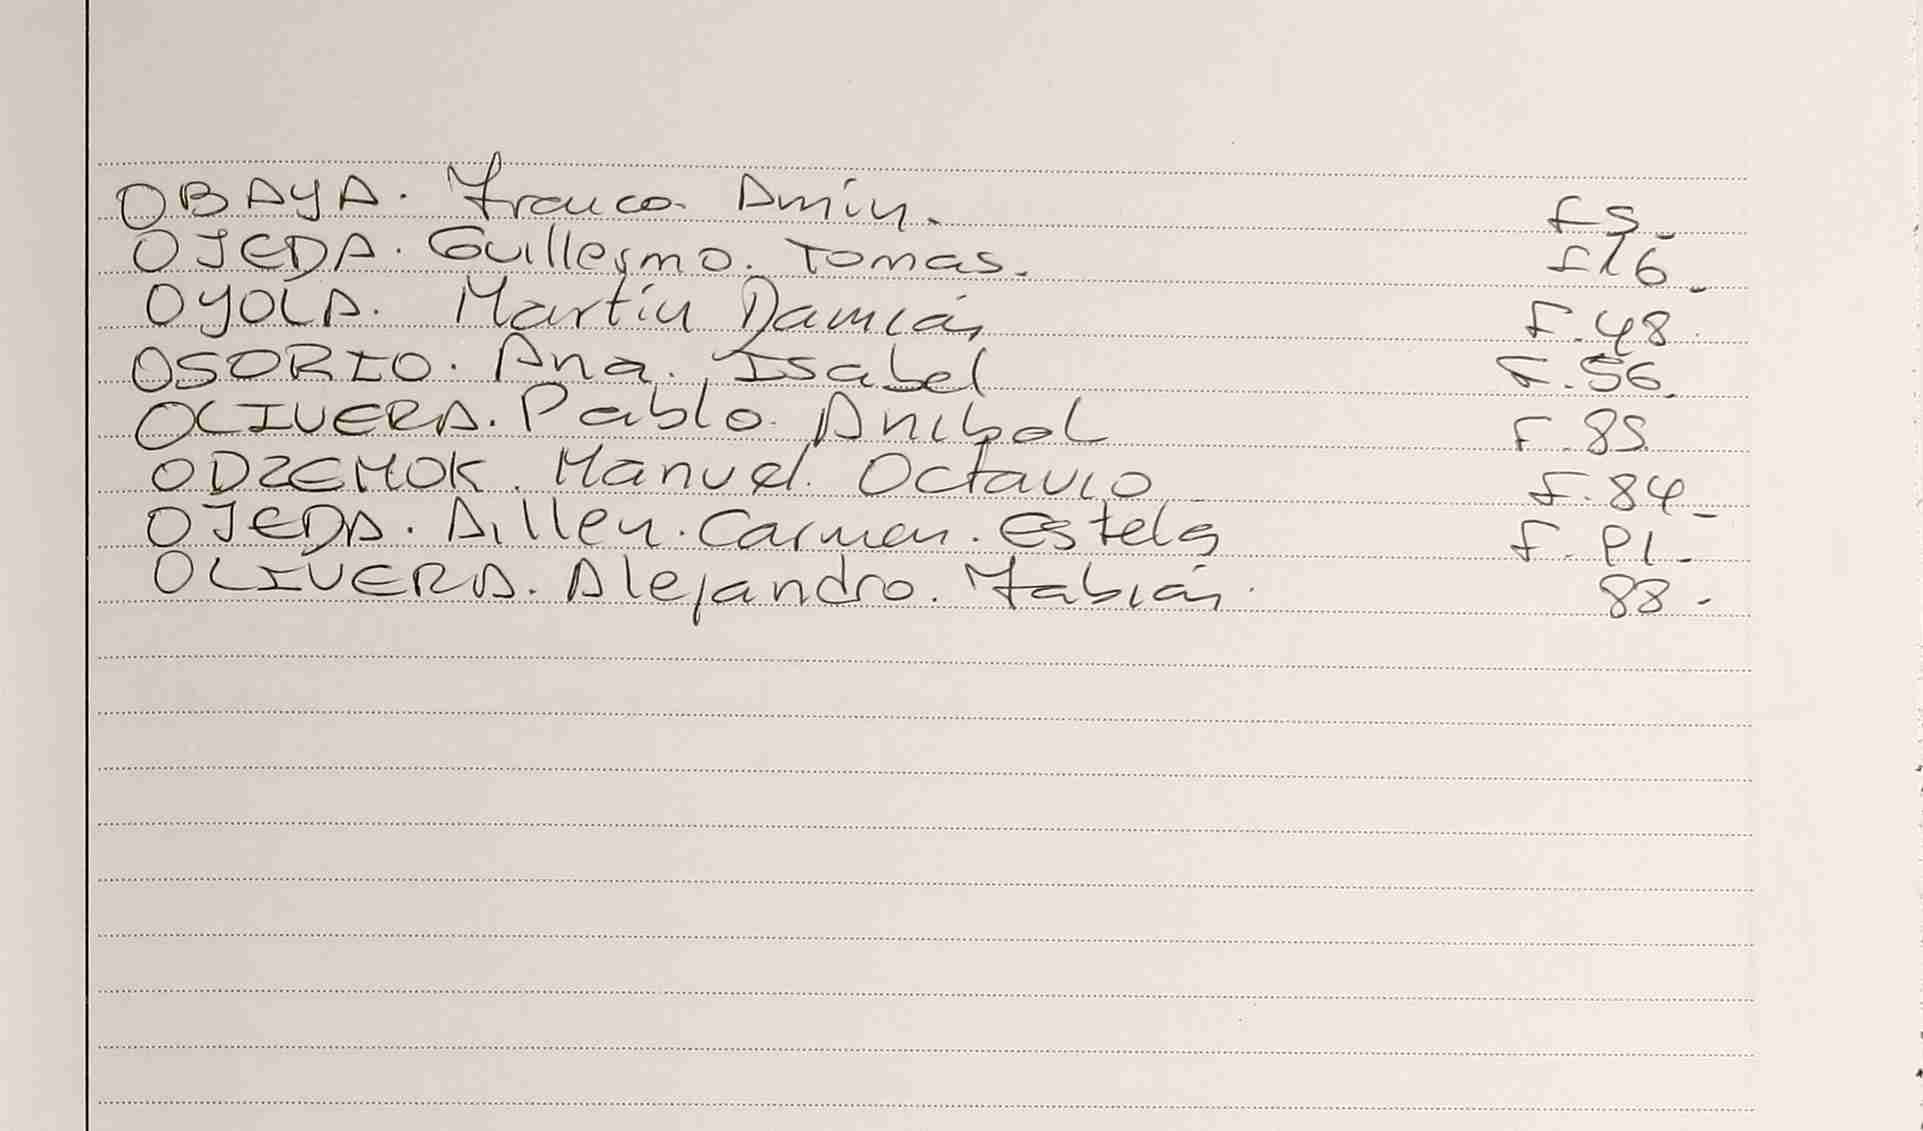 OBAYA. Franco. Amin. F 5_
OJEDA. Guillermo. Tomas. F 16_
OYOLA. Martin Damián F.48.
OSORIO. Ana. Isabel F.56.
OLIVERA. Pablo. Anibal F.85.
ODZEMOK. Manuel. Octavio F.84_
OJEDA. Aillen. Carmen. Estela F.91_
OLIVERA. Alejandro. Fabián. 88-